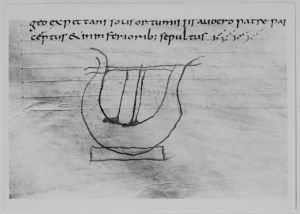 geo expectans solis ortum a libero patre
ceptus & in inferiorib; sepultus